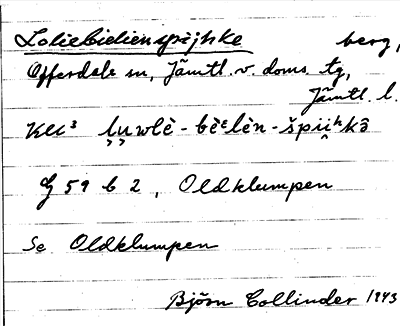 Loliebielienspèjhke berg,
Offerdals sn, Jämtl. v. doms. tg,
Jämtl. l.
Kll³ l̦u̦wlè-bèᵉlèn-špii̭ʰkā̂
G 59 b 2, Oldklumpen
Se Oldklumpen
Björn Collinder 1943